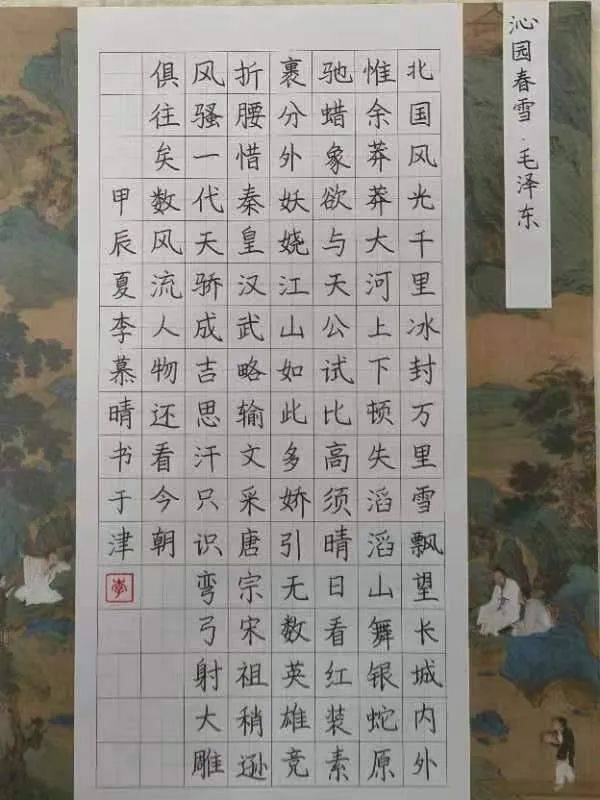 沁园春雪·毛泽东
北国风光千里冰封万里雪飘望长城内外
惟余莽莽大河上下顿失滔滔山舞银蛇原
驰蜡象欲与天公试比高须晴日看红装素
裹分外妖娆江山如此多娇引无数英雄竞
折腰惜秦皇汉武略输文采唐宗宋祖稍逊
风骚一代天骄成吉思汗只识弯弓射大雕
俱往矣数风流人物还看今朝
甲辰夏李慕晴书于津
李